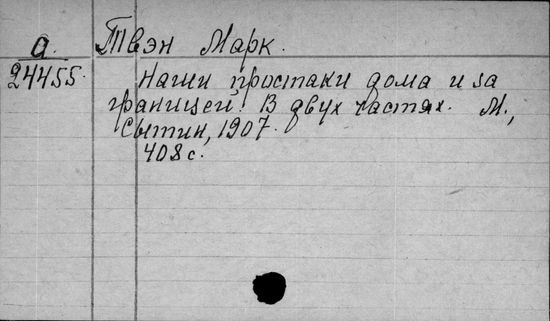 а. Твэн Марк.
24455. Наши простаки дома и за
границей. В двух частях. М.,
Сытин, 1907.
408 с.